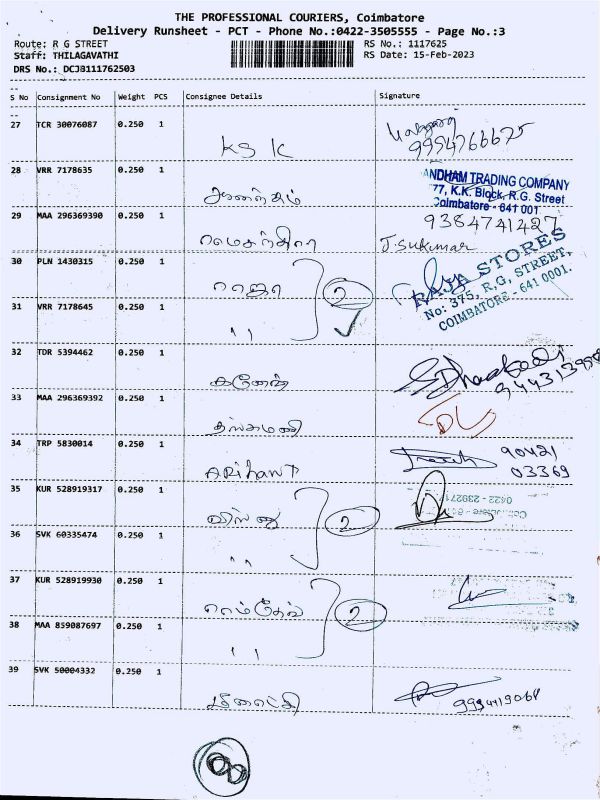 THE PROFESSIONAL COURIERS, Coimbatore
Delivery Runsheet - PCT - Phone No.:0422-3505555 - Page No.:3
Route: R G STREET RS No.: 1117625
Staff: THILAGAVATHI RS Date: 15-Feb-2023
DRS No.: DCJB111762503
S No Consignment No Weight PCS Consignee Details Signature
27 TCR 30076087 0.250 1
KSK 9994766675
28 VRR 7178635 0.250 1
ANDHAM TRADING COMPANY
77, K.K. Block, R.G. Street
Coimbatore - 641 001
29 MAA 296369390 0.250 1 9384741427
J.Sukumar
30 PLN 1430315 0.250 1
ராஜா 2 RAJA STORES
No: 375, R.G, STREET,
COIMBATORE - 641 0001.
31 VRR 7178645 0.250 1
,,
32 TDR 5394462 0.250 1
கணேஷ்
33 MAA 296369392 0.250 1
தங்கமணி
34 TRP 5830014 0.250 1 90421
ARihanT 03369
35 KUR 528919317 0.250 1 0422 - 2392717
விஷ்ணு 2
36 SVK 60335474 0.250 1
,,
37 KUR 528919930 0.250 1
2
38 MAA 859087697 0.250 1
,,
39 SVK 50004332 0.250 1
மீனாட்சி 9994419068